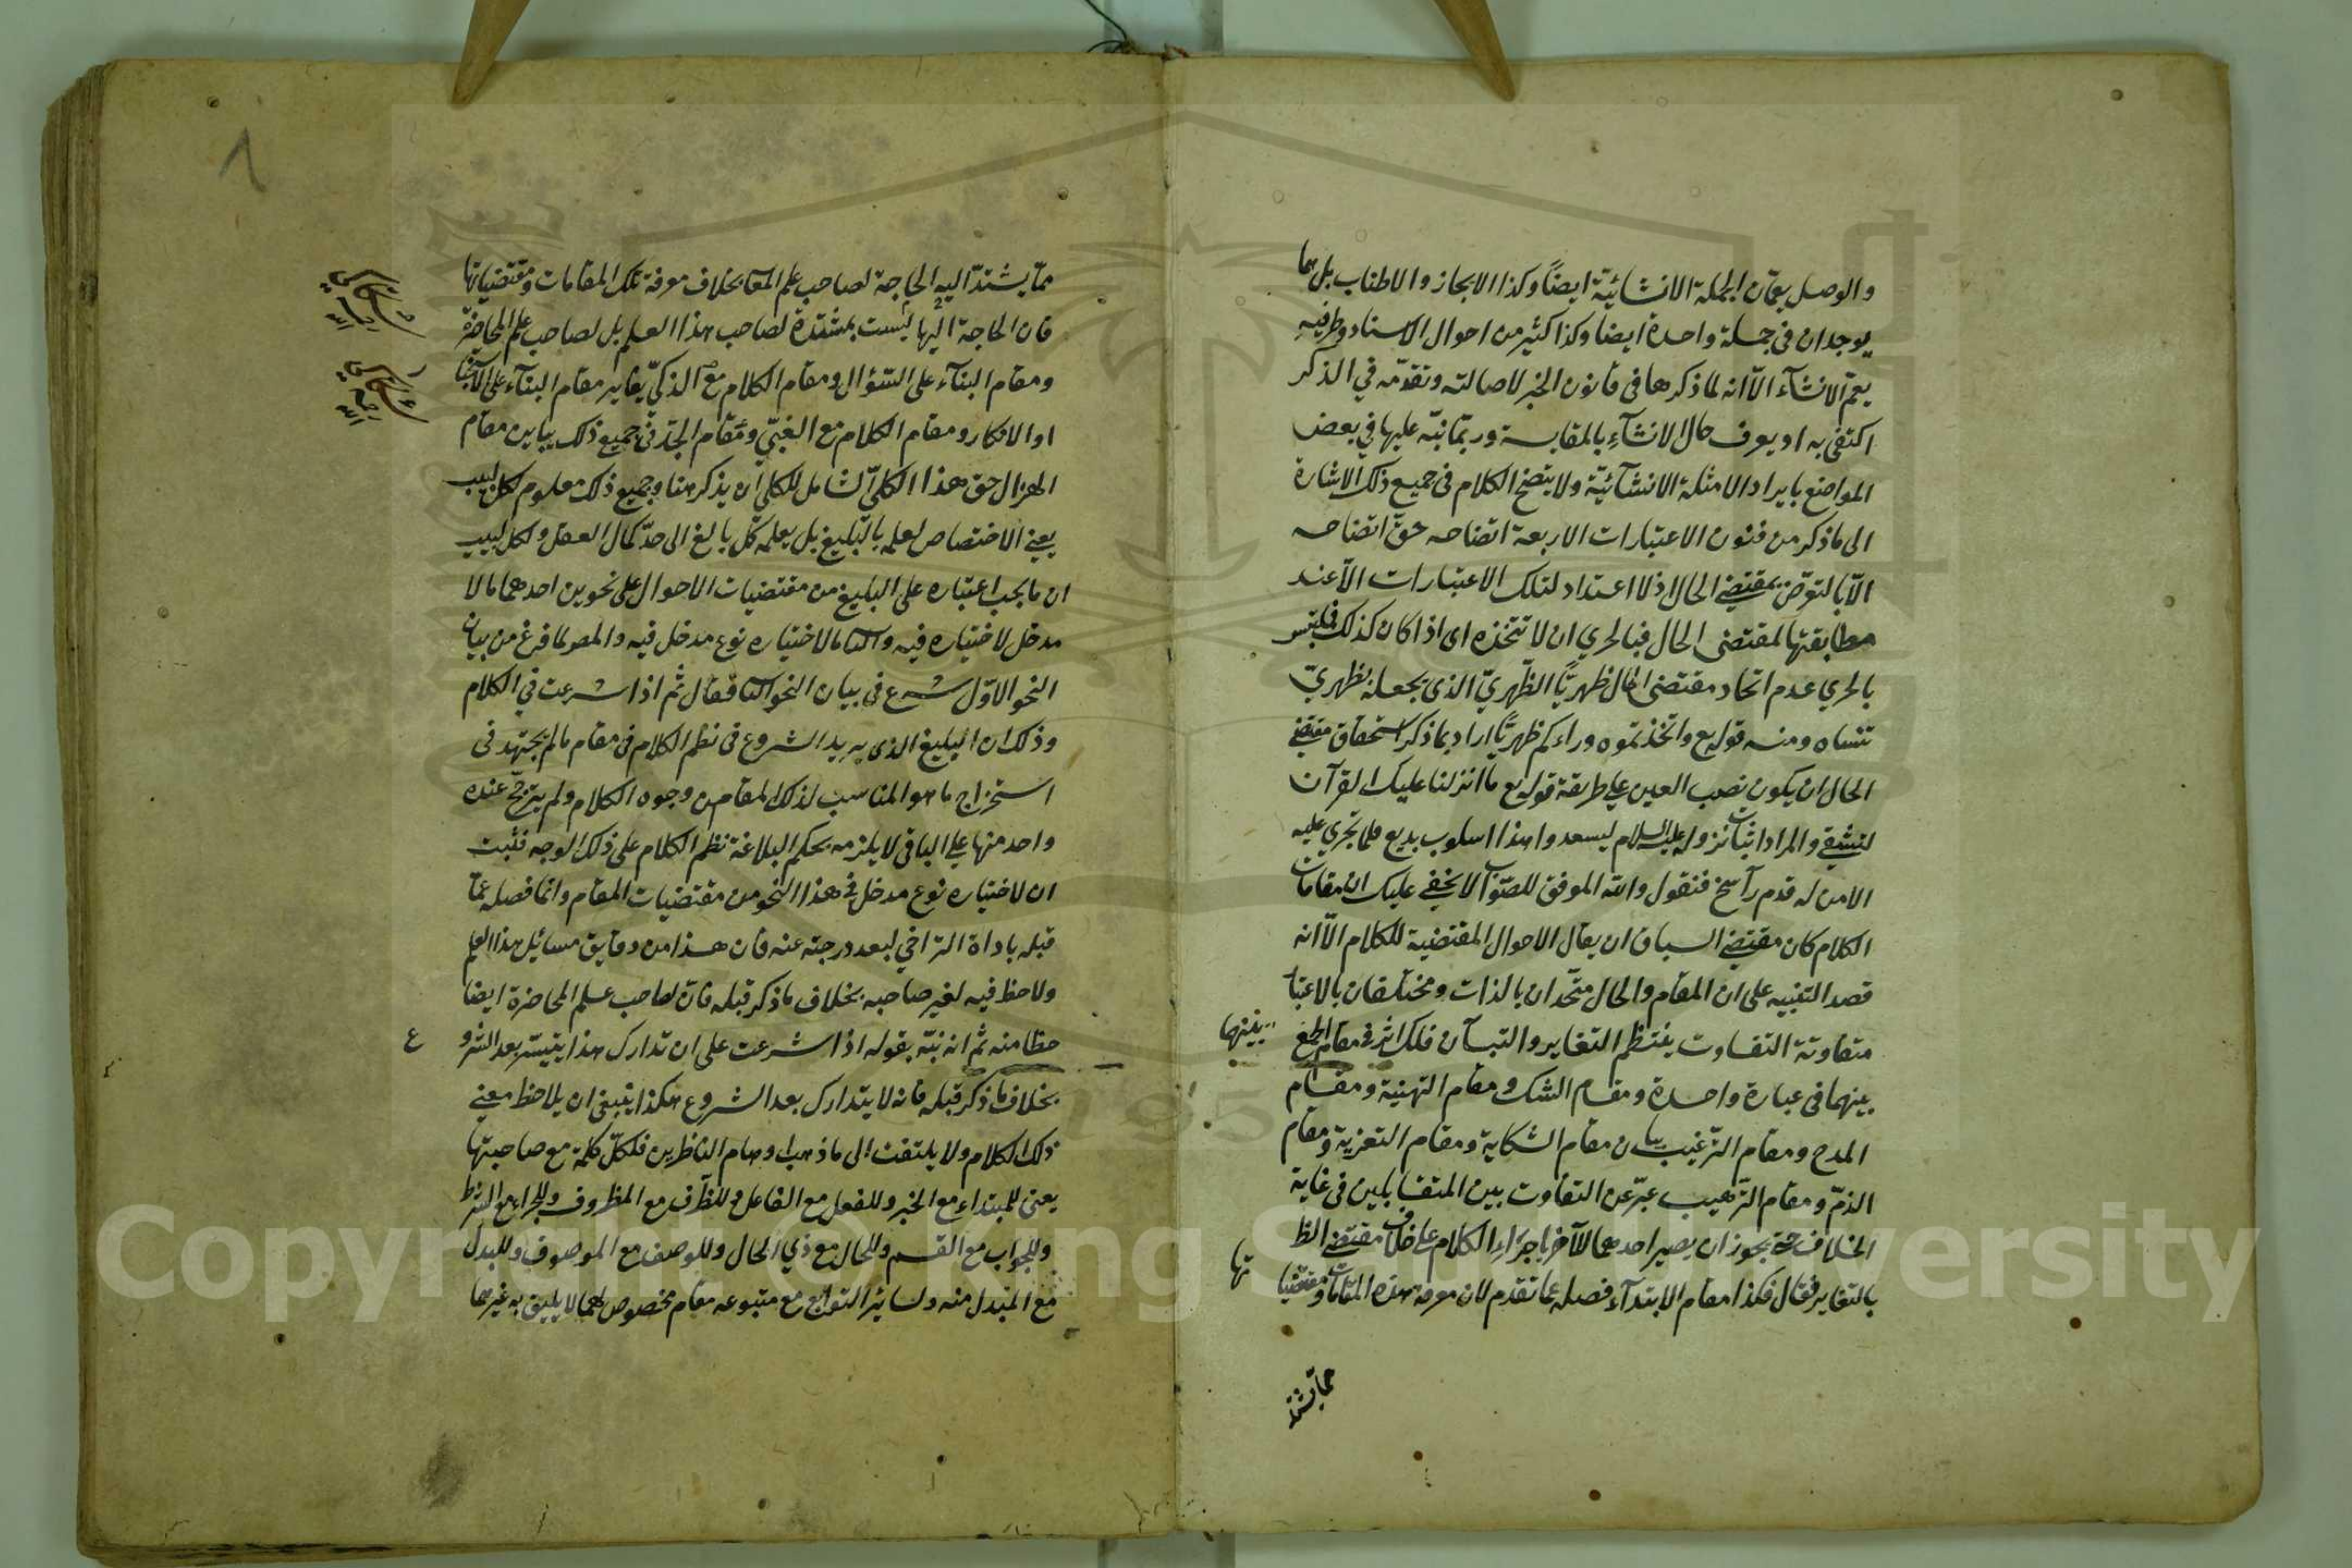 والوصل يعمّان الجملة الانشائيّة ايضاً وكذا الايجاز والاطناب بل هما
يوجدان في جملة واحدة ايضا وكذا كثير من احوال الاسناد وطرفيه
يعم الانشآء الّا انه لما ذكرها في قانون الخبر لاصالته وتقدّمه في الذكر
اكتفى به او يعرف حال الانشآء بالمقايسة وربّما نبّه عليها في بعض
المواضع بايراد الامثلة الانشآئيّة ولا يتضح الكلام في جميع ذلك الاشارة
الى ما ذكر من فنون الاعتبارات الاربعة اتضاحه حقّ اتضاحه
الّا بالتعرّض بمقتضى الحال اذ لا اعتداد لتلك الاعتبارات الّا عند
مطابقتها لمقتضى الحال فبالحري ان لا تتخذه اى اذا كان كذلك فملتبس
بالحري عدم اتخاد مقتضى الحال ظهريّاً الظّهريّ الذى يجعله بظهريّ
تنساه ومنه قوله تع واتخذتموه وراءكم ظهريّاً اراد بما ذكر استحقاق مقتضى
الحال ان يكون نصب العين على طريقة قوله تع ما انزلنا عليك القرآن
لتشقى والمراد اثبات نزوله عليه السلام ليسعد وهذا اسلوب بديع قلما تجري عليه
الا من له قدم راسخ فنقول والله الموفق للصّواب لا يخفى عليك ان مقامات
الكلام كان مقتضى السياق ان يقال الاحوال المقتضية للكلام الّا انه
قصد التنبيه على ان المقام والحال متّحدان بالذات ومختلفان بالاعتبا
متفاوتة التفاوت ينتظم التغاير والتبآن فلك اثر في مقام الجمع
بينهما
بينهما في عبارة واحدة ومقام الشك ومقام التهنية ومقام
المدح ومقام الترّغيب يباين مقام الشكاية ومقام التعزية ومقام
الذمّ ومقام الترّهيب عبّر عن التفاوت بين المتقابلين في غاية
الخلاف حتى يجوز ان يصير احدهما للآخر باجرآء الكلام على خلاف مقتضى الظ
بالتغاير فقال فكذا مقام الابتدآء فصله عما تقدم لان معرفة هذه المقامات ومقتضيا
تها
مما يشتد
ممّا يشتدّ اليه الحاجة لصاحب علم المعا بخلاف معرفة تلك المقامات ومقتضياتها
فان الحاجة اليها ليست بمشتدة لصاحب هذا العلم بل لصاحب علم المحاضرة
ومقام البنآء على السّؤال ومقام الكلام مع الذكيّ يغاير مقام البنآء على
او الانكار ومقام الكلام مع الغبيّ ومقام الجدّ في جميع ذلك يباين مقام
الهزل حق هذا الكليّ الشامل للكليّ ان يذكر هنا وجميع ذلك معلوم لكل لبيب
يعني الاختصاص لعلمه بالبليغ بل يعلمه كلّ بالغ الى حدّ كمال العقل ولكل لبيب
ان ما يجب اعتباره على البليغ من مقتضيات الاحوال على نحوين احدهما ما لا
مدخل لاختياره فيه والثا ما لاختياره نوع مدخل فيه والمص لما فرغ من بيان
النحو الاوّل شرع في بيان النحو الثا فقال ثم اذا شرعت في الكلام
وذلك ان البليغ الذى يريد الشروع في نظم الكلام في مقام ما لم يجتهد في
استخراج ما هو المناسب لذلك المقام من وجوه الكلام ولم يترجّح عنده
واحد منها على الباقي لا يلزمه بحكم البلاغة نظم الكلام على ذلك الوجه فثبت
ان لاختياره نوع مدخل في هذا النحو من مقتضيات المقام وانما فصله عمّا
قبله باداة التراخي لبعد درجته عنه فان هذا من دقايق مسائل هذا العلم
ولا حظ فيه لغير صاحبه بخلاف ما ذكر قبله فان لصاحب علم المحاضرة ايضا
حظا منه ثم انه نبّه بقوله اذا شرعت على ان تدارك هذا يتيسّر بعد الشرو
ع
بخلاف ما ذكر قبله فانه لا يتدارك بعد الشروع هكذا ينبغي ان يلاحظ معنى
ذلك الكلام ولا يلتفت الى ما ذهب اوهام الناظرين فلكلّ كلمة مع صاحبتها
يعنى للمبتداء مع الخبر وللفعل مع الفاعل وللظّرف مع المظروف وللجزاء مع الشرط
وللجواب مع القسم وللحال مع ذي الحال وللوصف مع الموصوف وللبدل
مع المبدل منه ولسائر التوابع مع متبوعه مقام مخصوص لهما لا يليق به غيرهما